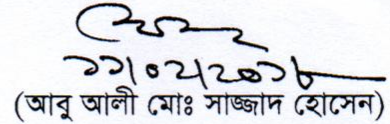 ১১/০২/২০১৮
(আবু আলী মোঃ সাজ্জাদ হোসেন)